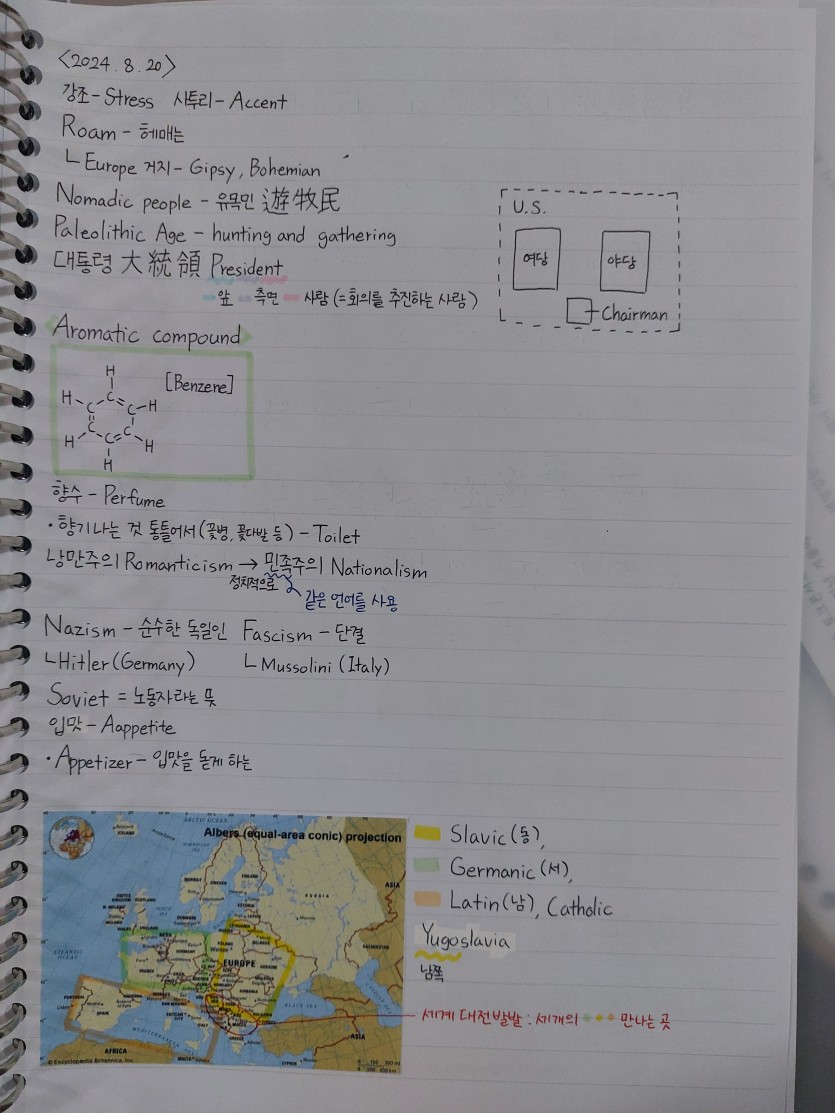 <2024.8.20>
강조-Stress 사투리-Accent
Roam - 헤매는
└ Europe 거지 - Gipsy, Bohemian
Nomadic people - 유목민 遊牧民
Paleolithic Age - hunting and gathering
대통령 大統領 President
앞 측면 사람 (=회의를 추진하는 사람)
U.S.
여당 야당
Chairman
Aromatic compound
[Benzene]
H
H C C H
C C
H C H
H
향수 - Perfume
· 향기나는 것 통틀어서 (꽃병, 꽃다발 등) - Toilet
낭만주의 Romanticism → 민족주의 Nationalism
정치적으로 같은 언어를 사용
Nazism - 순수한 독일인 Fascism - 단결
└ Hitler (Germany) └ Mussolini (Italy)
Soviet = 노동자라는 뜻
입맛 - Aappetite
· Appetizer - 입맛을 돋게 하는
Albers (equal-area conic) projection
ARCTIC OCEAN
ICELAND
NORWAY
FINLAND
RUSSIA
ASIA
ESTONIA
DENMARK
LITHUANIA
BELARUS
POLAND
GERMANY
EUROPE
UKRAINE
FRANCE
KAZAKHSTAN
ATLANTIC OCEAN
PORTUGAL
SPAIN
ANDORRA
SAN MARINO
VATICAN CITY
ITALY
BLACK SEA
CASPIAN SEA
MEDITERRANEAN SEA
GREECE
ASIA
AFRICA
MALTA
CYPRUS
© Encyclopædia Britannica, Inc.
Slavic (동),
Germanic (서),
Latin (남), Catholic
Yugoslavia
남쪽
세계 대전발발 : 세개의 만나는 곳